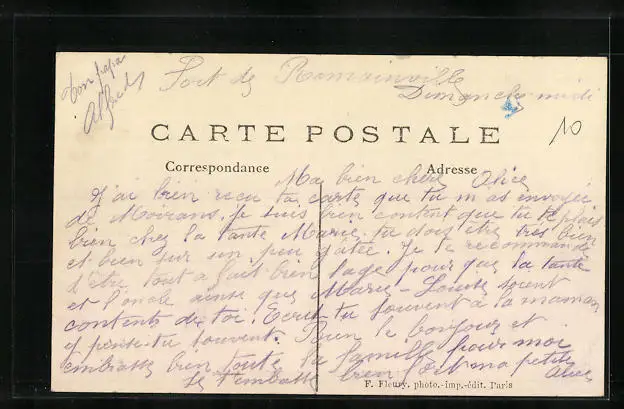 Ton papa
Alfred
Fort de Romainville
Dimanche midi
10
CARTE POSTALE
Correspondance
Adresse
Ma bien chère Alice
J'ai bien reçu ta carte que tu m'as envoyée
de Moirans. Je suis bien content que tu te plais
bien chez la tante Marie, tu dois être très bien
et bien sur un peu gâtée. Je te recommande
d'être tout à fait bien sage pour que la tante
et l'oncle ainsi que Marie-Louise soient
contents de toi. Ecris-tu souvent à la maman
y pense-tu souvent. Bien le bonjour et
embrasse bien toute la famille pour moi
Je t'embrasse bien fort ma petite
Alice
F. Fleury, photo.-imp.-édit. Paris